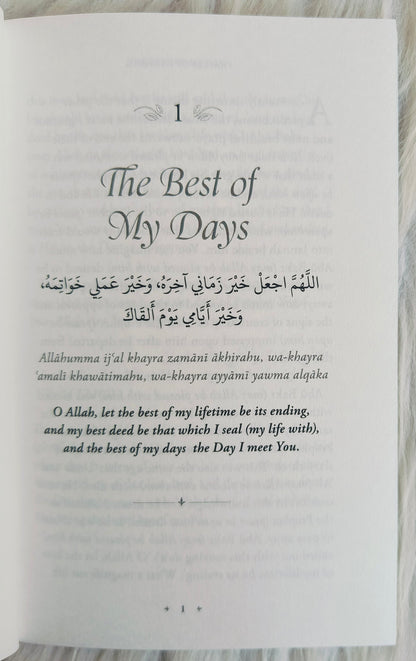 1
The Best of
My Days
اللَّهُمَّ اجْعَلْ خَيْرَ زَمَانِي آخِرَهُ، وَخَيْرَ عَمَلِي خَوَاتِمَهُ،
وَخَيْرَ أَيَّامِي يَوْمَ أَلْقَاكَ
Allāhumma ij‘al khayra zamānī ākhirahu, wa-khayra
‘amalī khawātimahu, wa-khayra ayyāmī yawma alqāka
O Allah, let the best of my lifetime be its ending,
and my best deed be that which I seal (my life with),
and the best of my days the Day I meet You.
1